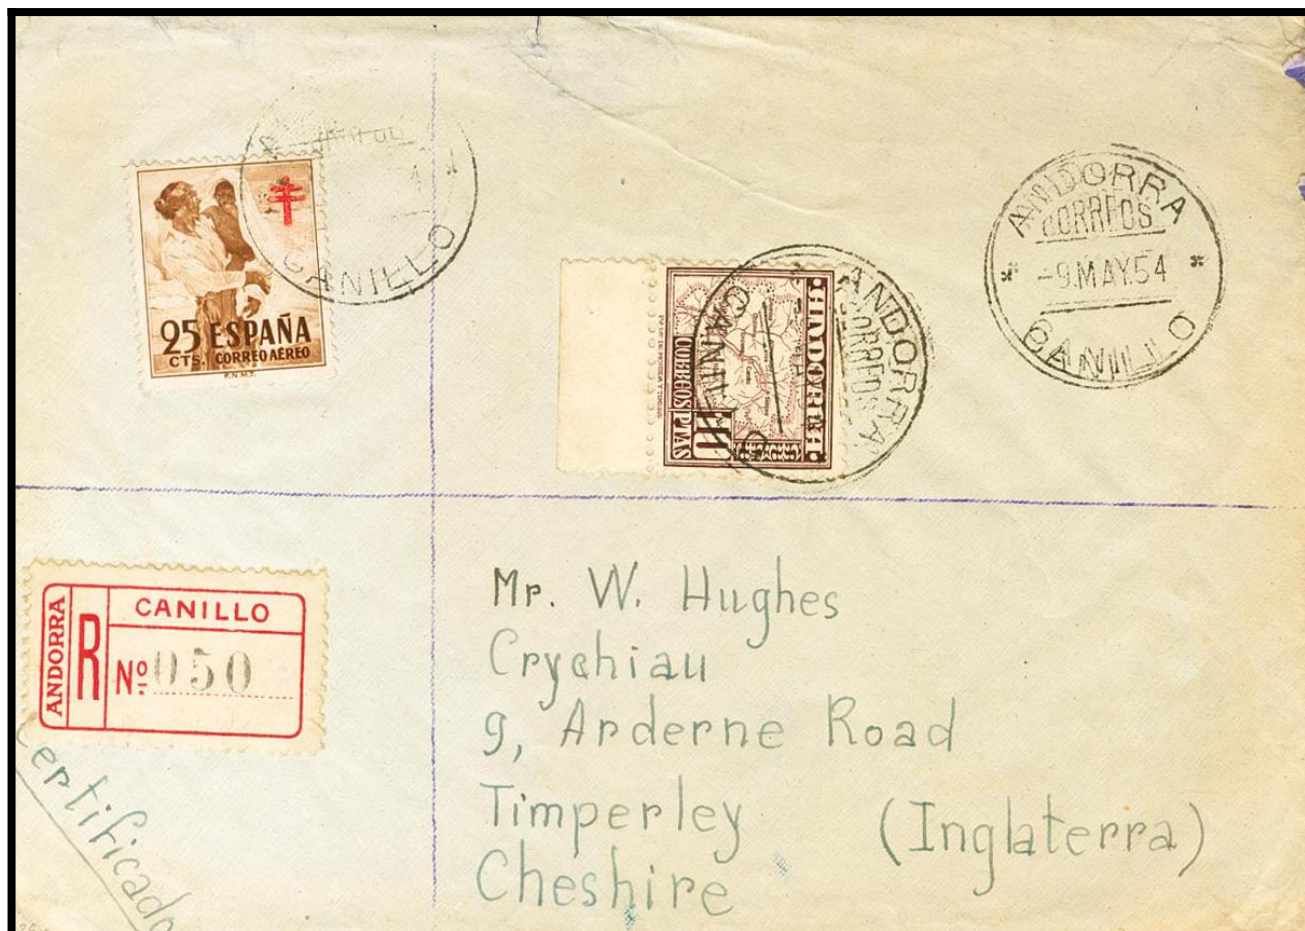 CANILLO
25 ESPAÑA
CTS. CORREO AÉREO
F.N.M.T.
ANDORRA
CORREOS
CANILLO
ANDORRA
10
CORREOS PTAS
ANDORRA
CORREOS
-9.MAY.54
CANILLO
ANDORRA
R
CANILLO
Nº 050
Certificado
Mr. W. Hughes
Crychiau
9, Arderne Road
Timperley
(Inglaterra)
Cheshire